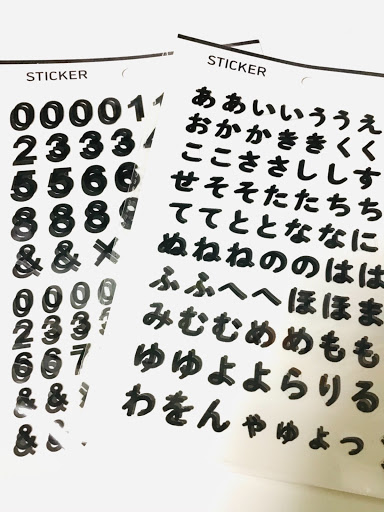 STICKER
0 0 0 0 1 1
2 3 3 3
5 5 6 6
8 8 8 9
& & ×
0 0 0 0
2 3 3 3
6 6 7
& &
& &
STICKER
ああいいううえ
おかかききくく
ここささししす
せそそたたちち
ててととななに
ぬねねののはは
ふふへへほほま
みむむめめもも
ゆゆよよらりる
わをんゃゅょっ